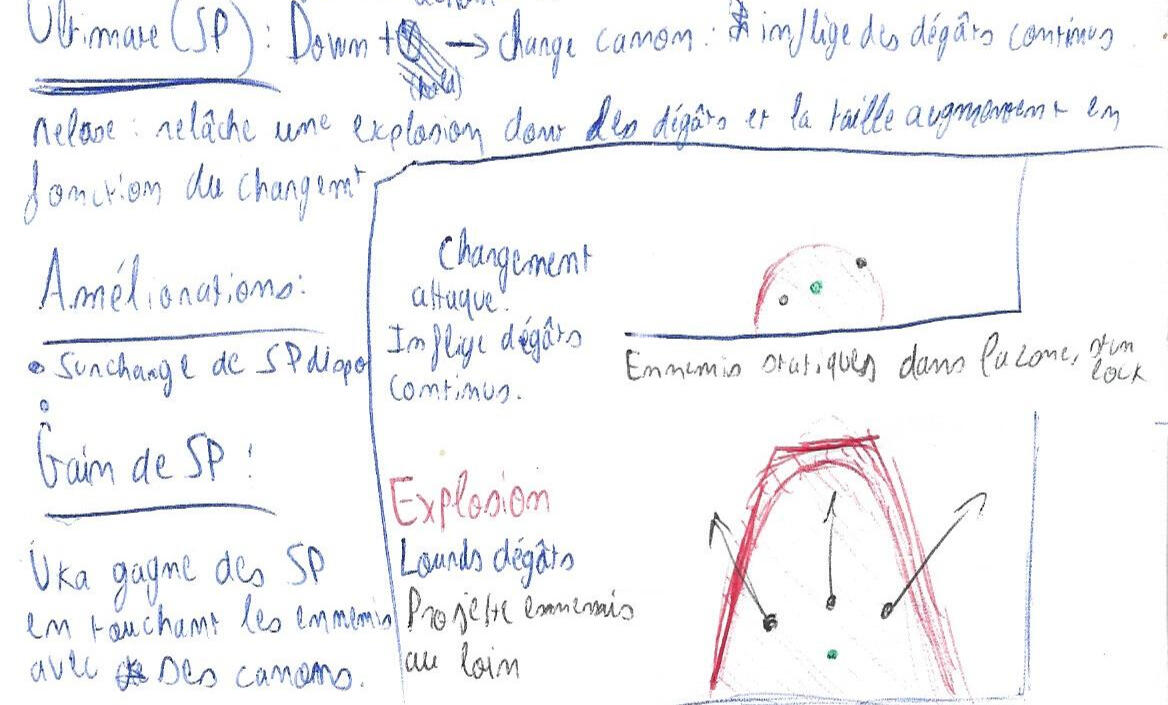 Ultimate (SP) : Down + → charge canon : inflige des dégâts continus
relase : relâche une explosion dont les dégâts et la taille augmentent en
fonction du chargemt
Améliorations :
• Surcharge de SP dispo
Gain de SP :
Uka gagne des SP
en touchant les ennemis
avec ses canons.
Chargement
attaque.
Inflige dégâts
continus.
Ennemis statiques dans la zone, stun
lock
Explosion
Lourds dégâts
Projette ennemis
au loin